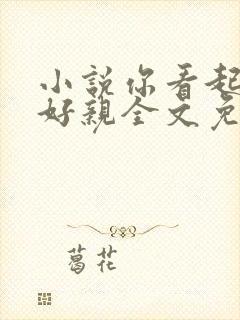 小說你看起
好親全文免
葛花